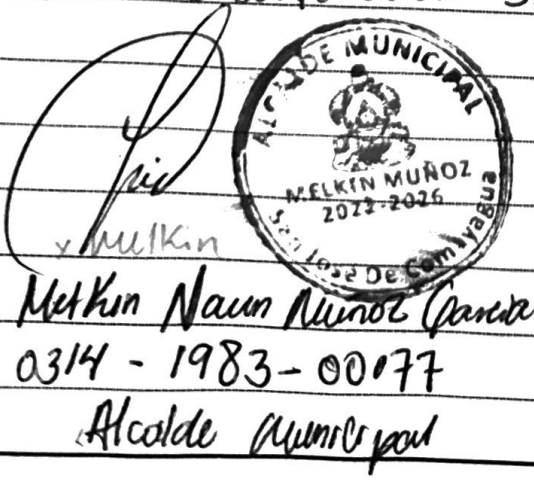 ALCALDE MUNICIPAL
MELKIN MUÑOZ
2022-2026
San José De Comayagua
Melkin
Melkin Naun Muñoz Garcia
0314 - 1983 - 00077
Alcalde Municipal